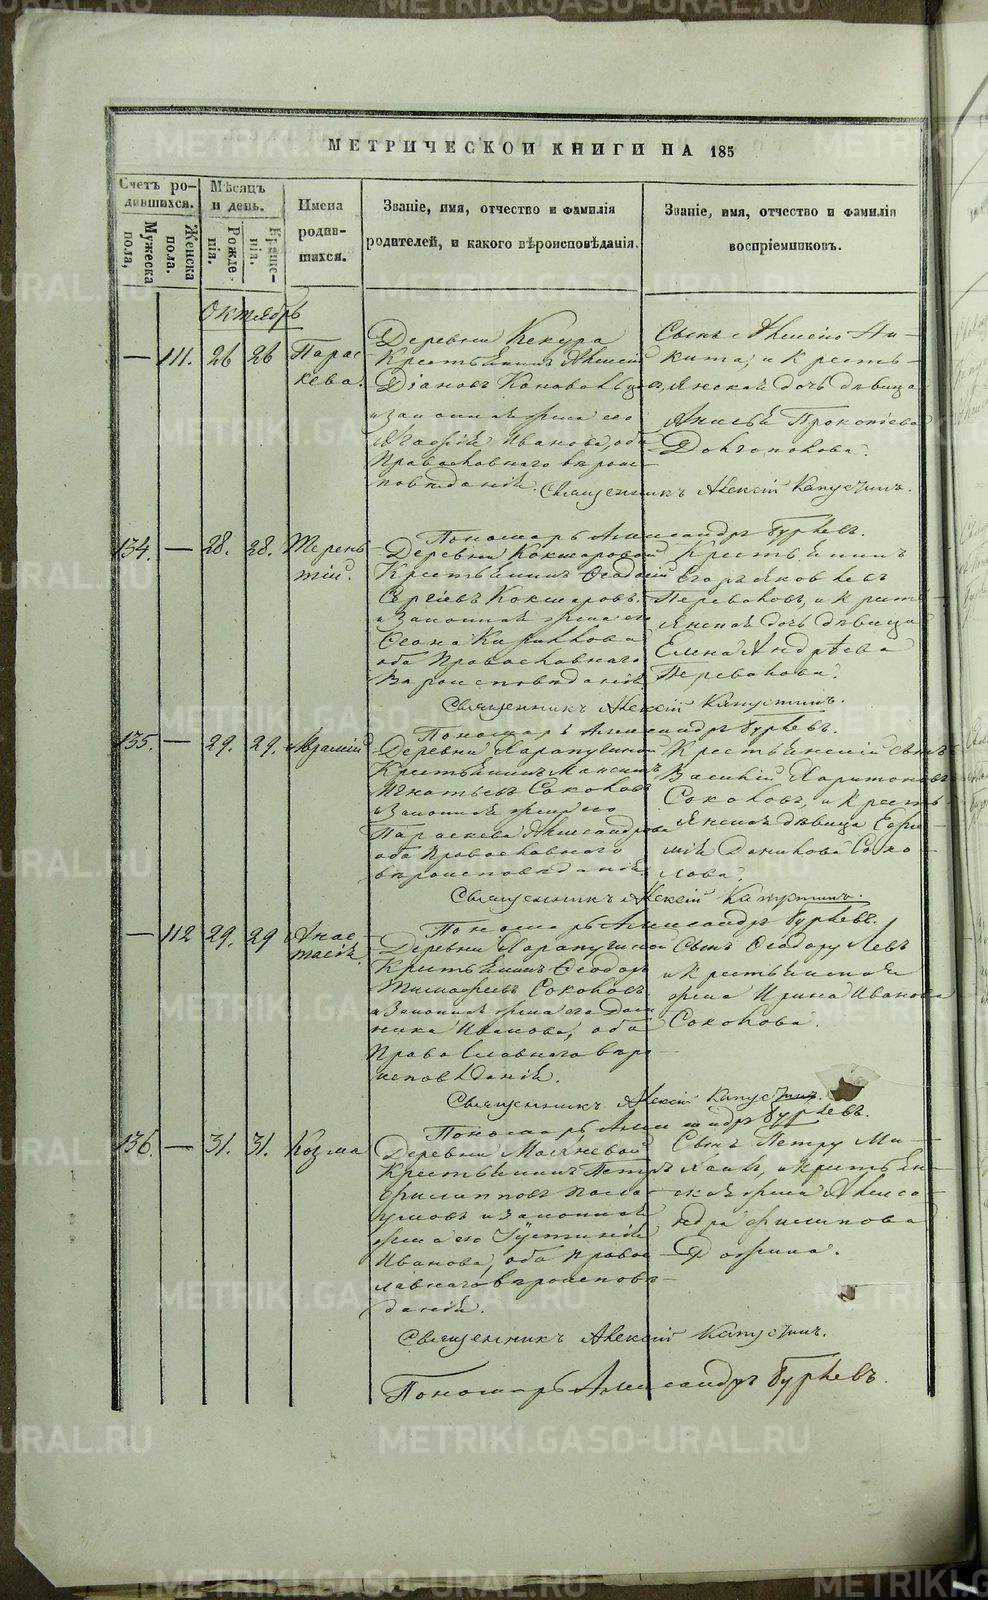 МЕТРИЧЕСКОЙ КНИГИ НА 185
Счетъ ро-
дившихся.
Мужеска
пола,
Женска
пола.
Мѣсяцъ
и день.
Рожде-
нія.
Креще-
нія.
Имена
родив-
шихся.
Званіе, имя, отчество и фамилія
родителей, и какого вѣроисповѣданія.
Званіе, имя, отчество и фамилія
воспріемниковъ.
Октябрь
— 111. 26 26 Парас-
кева.
Деревни Кекура
Крестьянинъ Алексій
Коноваловъ
и Законная жена его
Агафія Иванова, оба
Православнаго вѣроис-
повѣданія.
Сынъ Алексіе Ни-
кита, и Кресть-
янская дочь дѣвица
Анисья Прокопіева
Долгополова.
Священникъ Алексій Капустинъ.
Пономарь Александръ Бурлевъ.
134. — 28. 28. Терен-
тій.
Деревни Кокшаровой
Крестьянинъ Ѳеодосій
Сергіевъ Кокшаровъ.
и Законная жена его
Кирилова
оба Православнаго
Вѣроисповѣданія.
Крестьянинъ
Егоръ Яковлевъ
Переваловъ, и Кресть-
янская дочь дѣвица
Елена Андрѣева
Перевалова.
Священникъ Алексій Капустинъ.
Пономарь Александръ Бурлевъ.
135. — 29. 29. Аврамій
Деревни
Крестьянинъ Максимъ
Игнатьевъ Соколовъ
и Законная жена его
Параскева Александрова
оба Православнаго
вѣроисповѣданія.
Крестьянскій сынъ
Василій Харитоновъ
Соколовъ, и Кресть-
янская дѣвица Евфи-
мія Данилова Соко-
лова.
Священникъ Алексій Капустинъ.
Пономарь Александръ Бурлевъ.
— 112 29. 29 Анас-
тасія.
Деревни
Крестьянинъ Ѳеодоръ
Тимофеевъ Соколовъ
и Законная жена его Дом-
ника Иванова, оба
Православнаго вѣро-
исповѣданія.
Сынъ Ѳеодору Левъ
и Крестьянская
жена Ирина Иванова
Соколова.
Священникъ Алексій Капустинъ.
Пономарь Александръ Бурлевъ.
136. — 31. 31. Козма
Деревни
Крестьянинъ Петръ
Филипповъ
и Законная
жена его Іустинія
Иванова, оба Правос-
лавнаго вѣроисповѣ-
данія.
Сынъ Петру Ми-
хаилъ, и Крестьян-
ская жена Алекса-
ндра Филипова
Священникъ Алексій Капустинъ.
Пономарь Александръ Бурлевъ.
METRIKI.GASO-URAL.RU